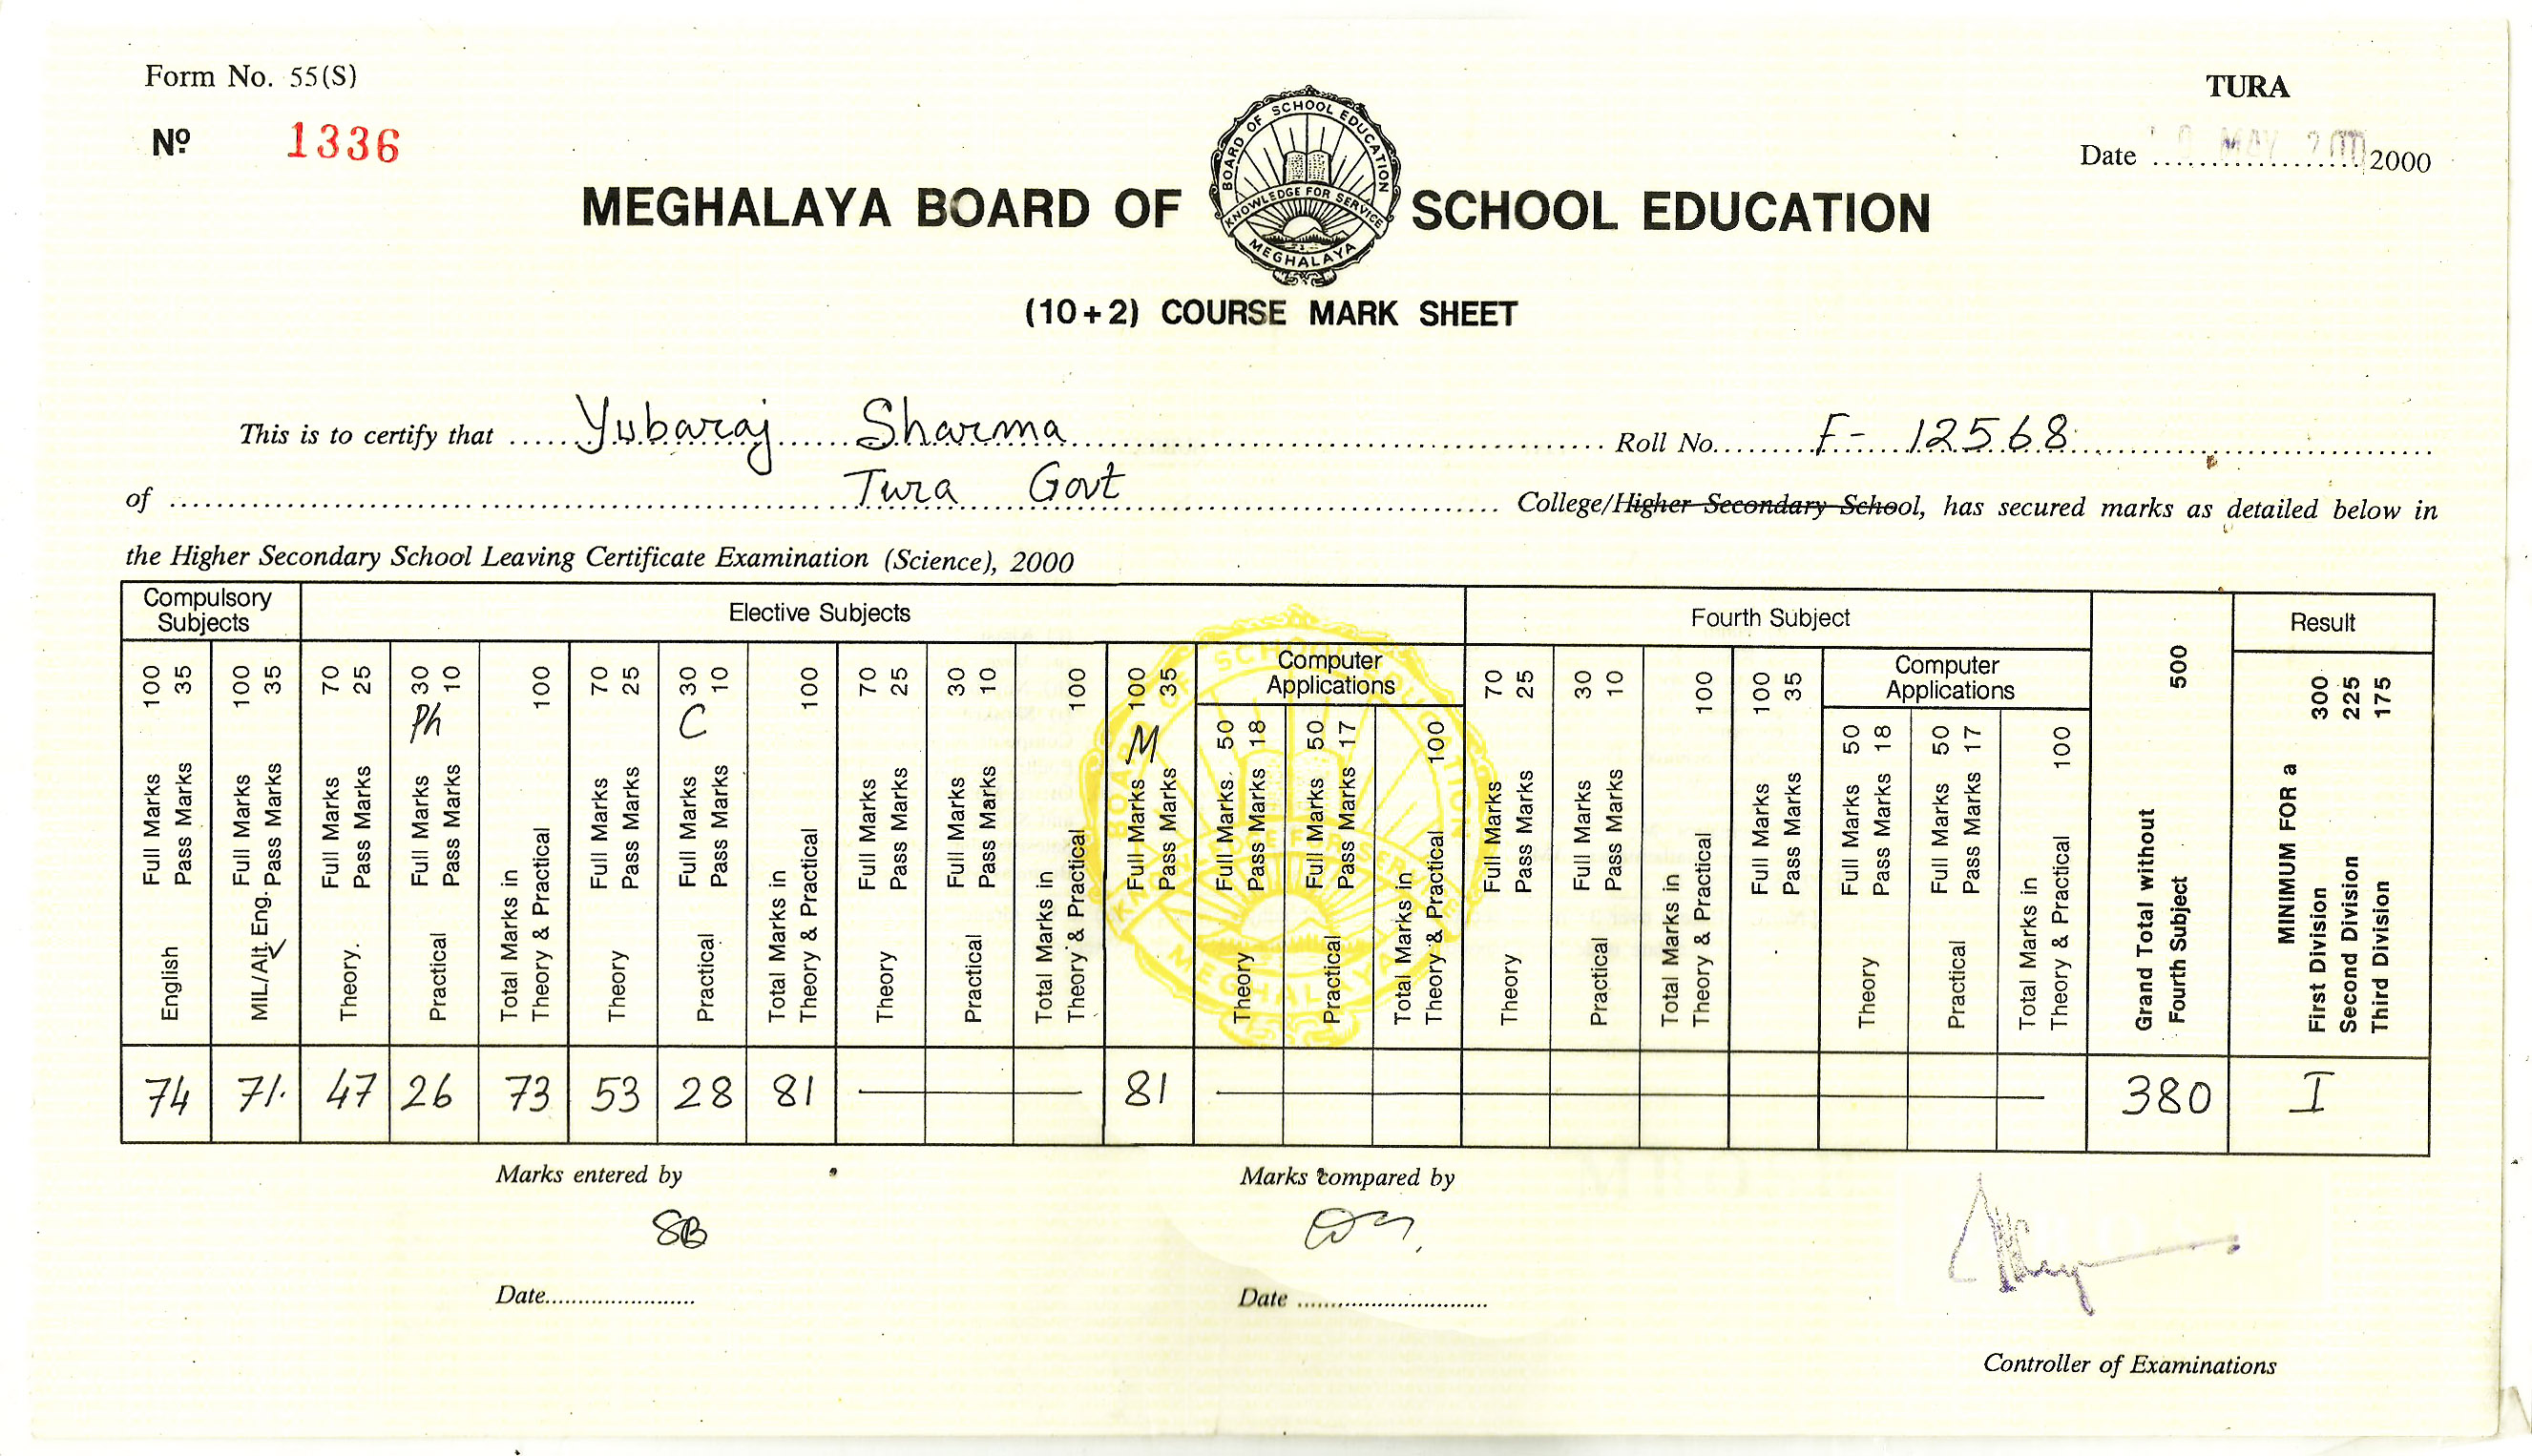 Form No. 55(S)
TURA
Nº 1336
Date .................... 2000
MAY
MEGHALAYA BOARD OF SCHOOL EDUCATION
BOARD OF SCHOOL EDUCATION
KNOWLEDGE FOR SERVICE
MEGHALAYA
(10+2) COURSE MARK SHEET
This is to certify that Yubaraj Sharma Roll No. F- 12568
of Tura Govt College/Higher Secondary School, has secured marks as detailed below in
the Higher Secondary School Leaving Certificate Examination (Science), 2000
Compulsory Subjects
Elective Subjects
Fourth Subject
Result
English Full Marks 100 Pass Marks 35
MIL/Alt. Eng. Full Marks 100 Pass Marks 35
Theory. Full Marks 70 Pass Marks 25
Ph
Practical Full Marks 30 Pass Marks 10
Total Marks in Theory & Practical 100
Theory Full Marks 70 Pass Marks 25
C
Practical Full Marks 30 Pass Marks 10
Total Marks in Theory & Practical 100
Theory Full Marks 70 Pass Marks 25
Practical Full Marks 30 Pass Marks 10
Total Marks in Theory & Practical 100
M
Full Marks 100 Pass Marks 35
Computer Applications
Theory Full Marks 50 Pass Marks 18
Practical Full Marks 50 Pass Marks 17
Total Marks in Theory & Practical 100
Theory Full Marks 70 Pass Marks 25
Practical Full Marks 30 Pass Marks 10
Total Marks in Theory & Practical 100
Full Marks 100 Pass Marks 35
Computer Applications
Theory Full Marks 50 Pass Marks 18
Practical Full Marks 50 Pass Marks 17
Total Marks in Theory & Practical 100
Grand Total without Fourth Subject 500
MINIMUM FOR a
First Division 300
Second Division 225
Third Division 175
74 71 47 26 73 53 28 81 81 380 I
Marks entered by
Marks compared by
SB
Date
Date
Controller of Examinations